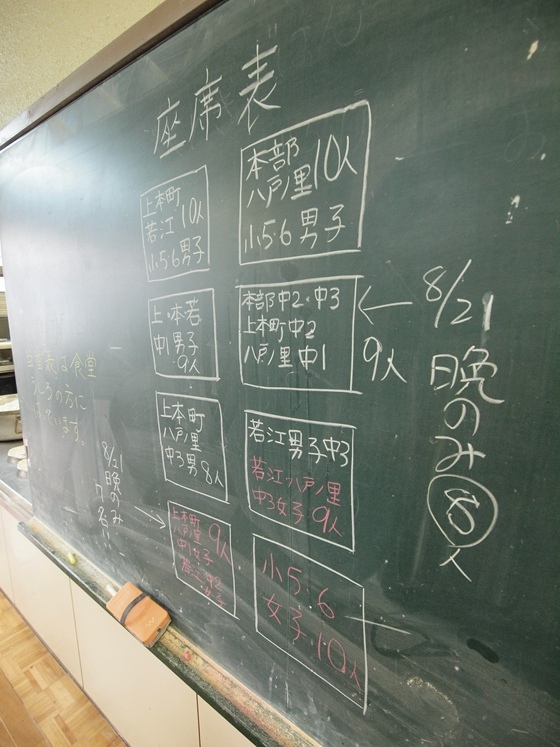 座席表
上本町
若江 10人
小5・6男子
本部
八戸ノ里 10人
小5・6 男子
上・本・若
中1男子
9人
本部中2・中3
上本町中2
八戸ノ里中1
9人
← 8/21
晩のみ
⑧
人
上本町
八戸ノ里
中3男 8人
若江男子中3
若江・八戸ノ里
中3女子 9人
9人
中1女子
小5・6
女子 10人
は食堂
うしろの方に
います。
8/21
晩のみ
7名!!